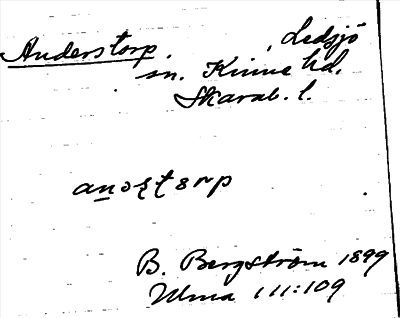 Anderstorp. , Ledsjö
sn. Kinne hd.
Skarab. l.
B. Bergström 1899
Ulma 111:109